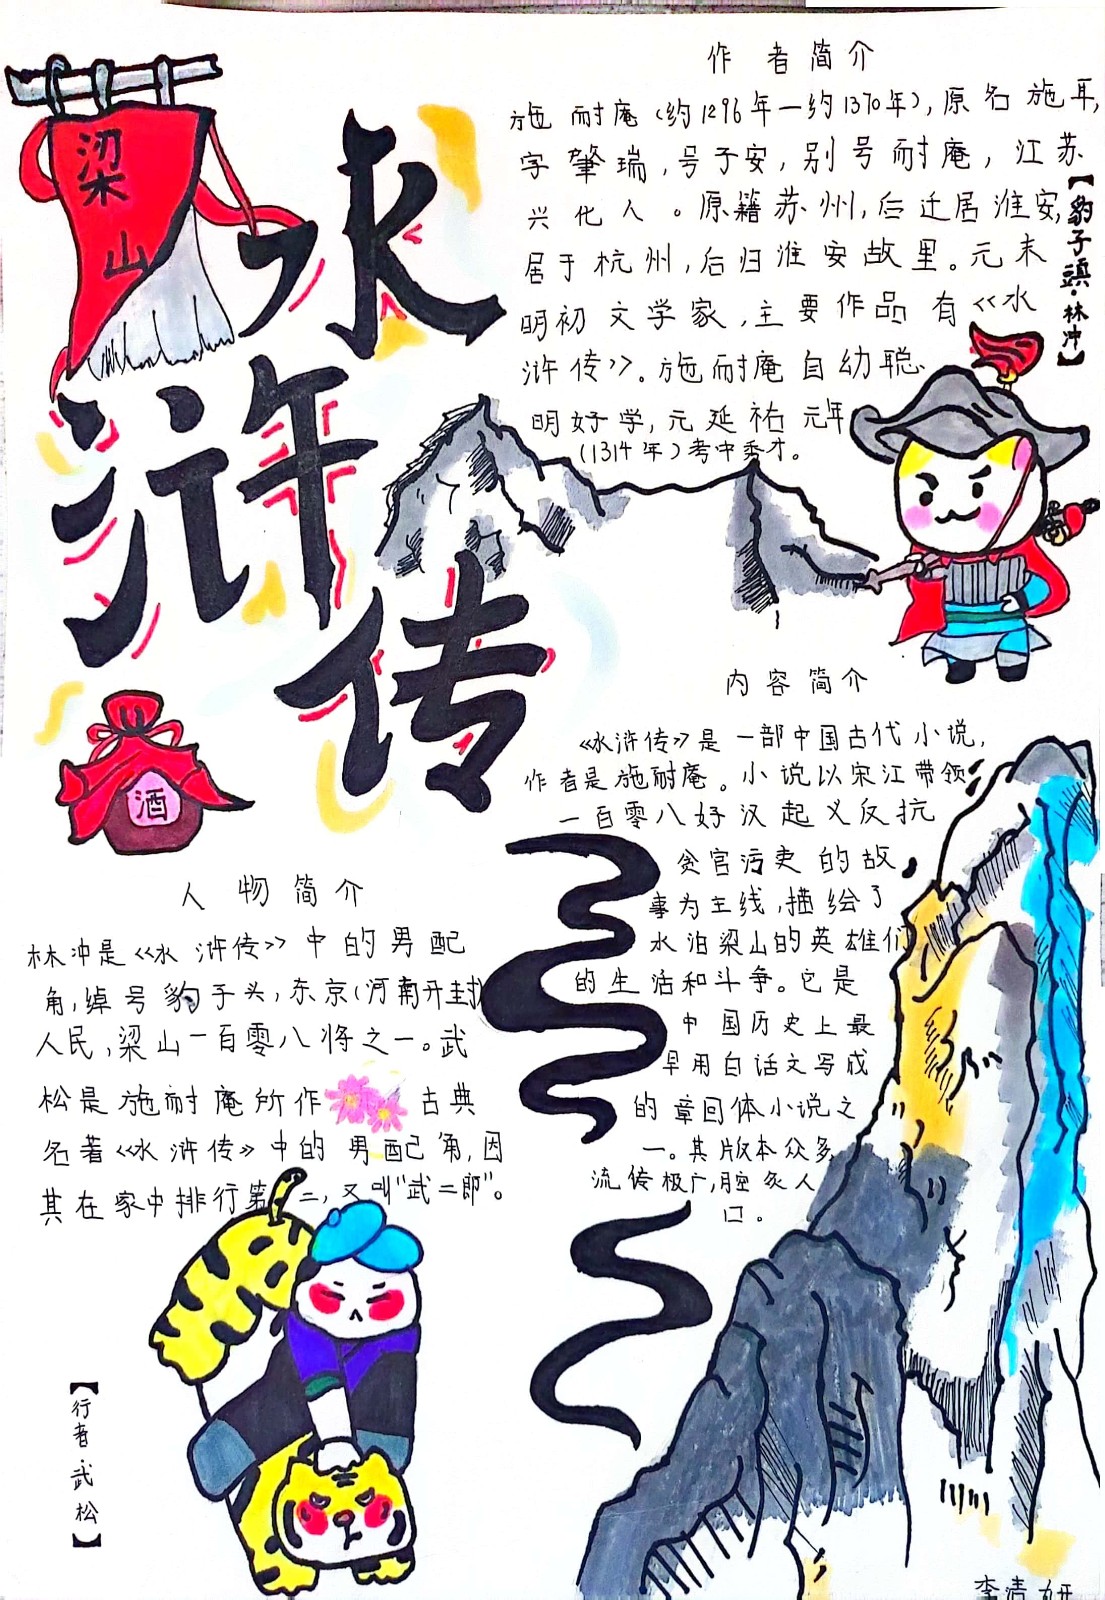 梁
山
水
浒
传
酒
作者简介
施耐庵(约1296年—约1370年),原名施耳,
字肇瑞,号子安,别号耐庵,江苏
兴化人。原籍苏州,后迁居淮安,
居于杭州,后归淮安故里。元末
明初文学家,主要作品有《水
浒传》。施耐庵自幼聪
明好学,元延祐元年
(1314年)考中秀才。
【豹子頭·林冲】
内容简介
《水浒传》是一部中国古代小说,
作者是施耐庵。小说以宋江带领
一百零八好汉起义反抗
贪官污吏的故
事为主线,描绘了
水泊梁山的英雄们
的生活和斗争。它是
中国历史上最
早用白话文写成
的章回体小说之
一。其版本众多
流传极广,脍炙人
口。
人物简介
林冲是《水浒传》中的男配
角,绰号豹子头,东京(河南开封)
人民,梁山一百零八将之一。武
松是施耐庵所作古典
名著《水浒传》中的男配角,因
其在家中排行第二,又叫“武二郎”。
【行者·武松】
李清妍